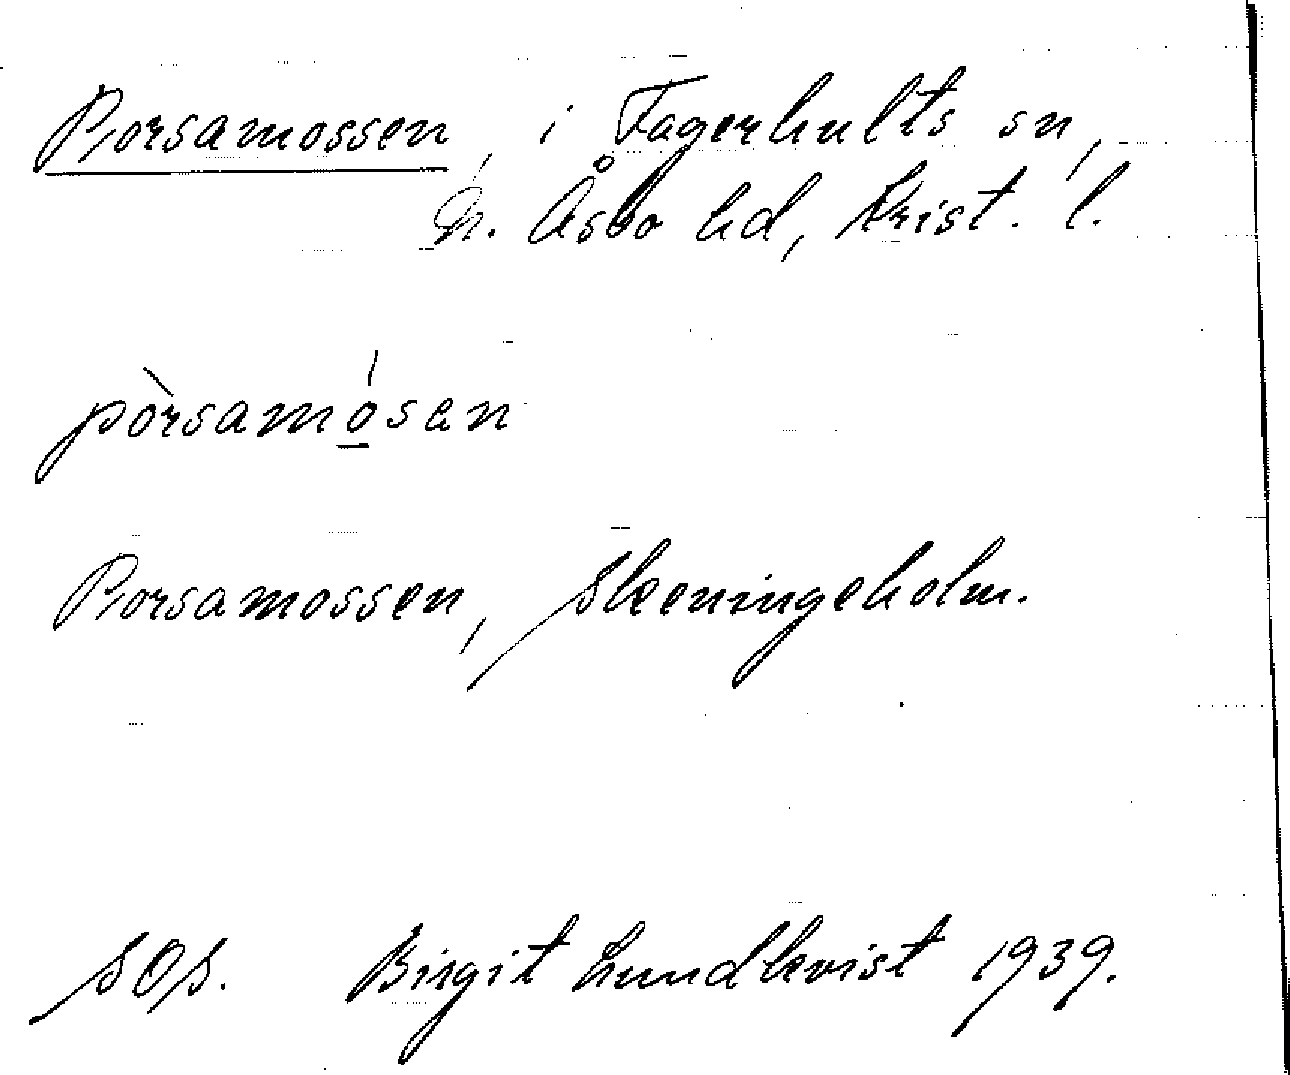 Porsamossen, i Fagerhults sn,
N. Åsbo hd, Krist. l.
pòrsamósen
Porsamossen, Skeeningeholm.
SOS. Birgit Lundkvist 1939.